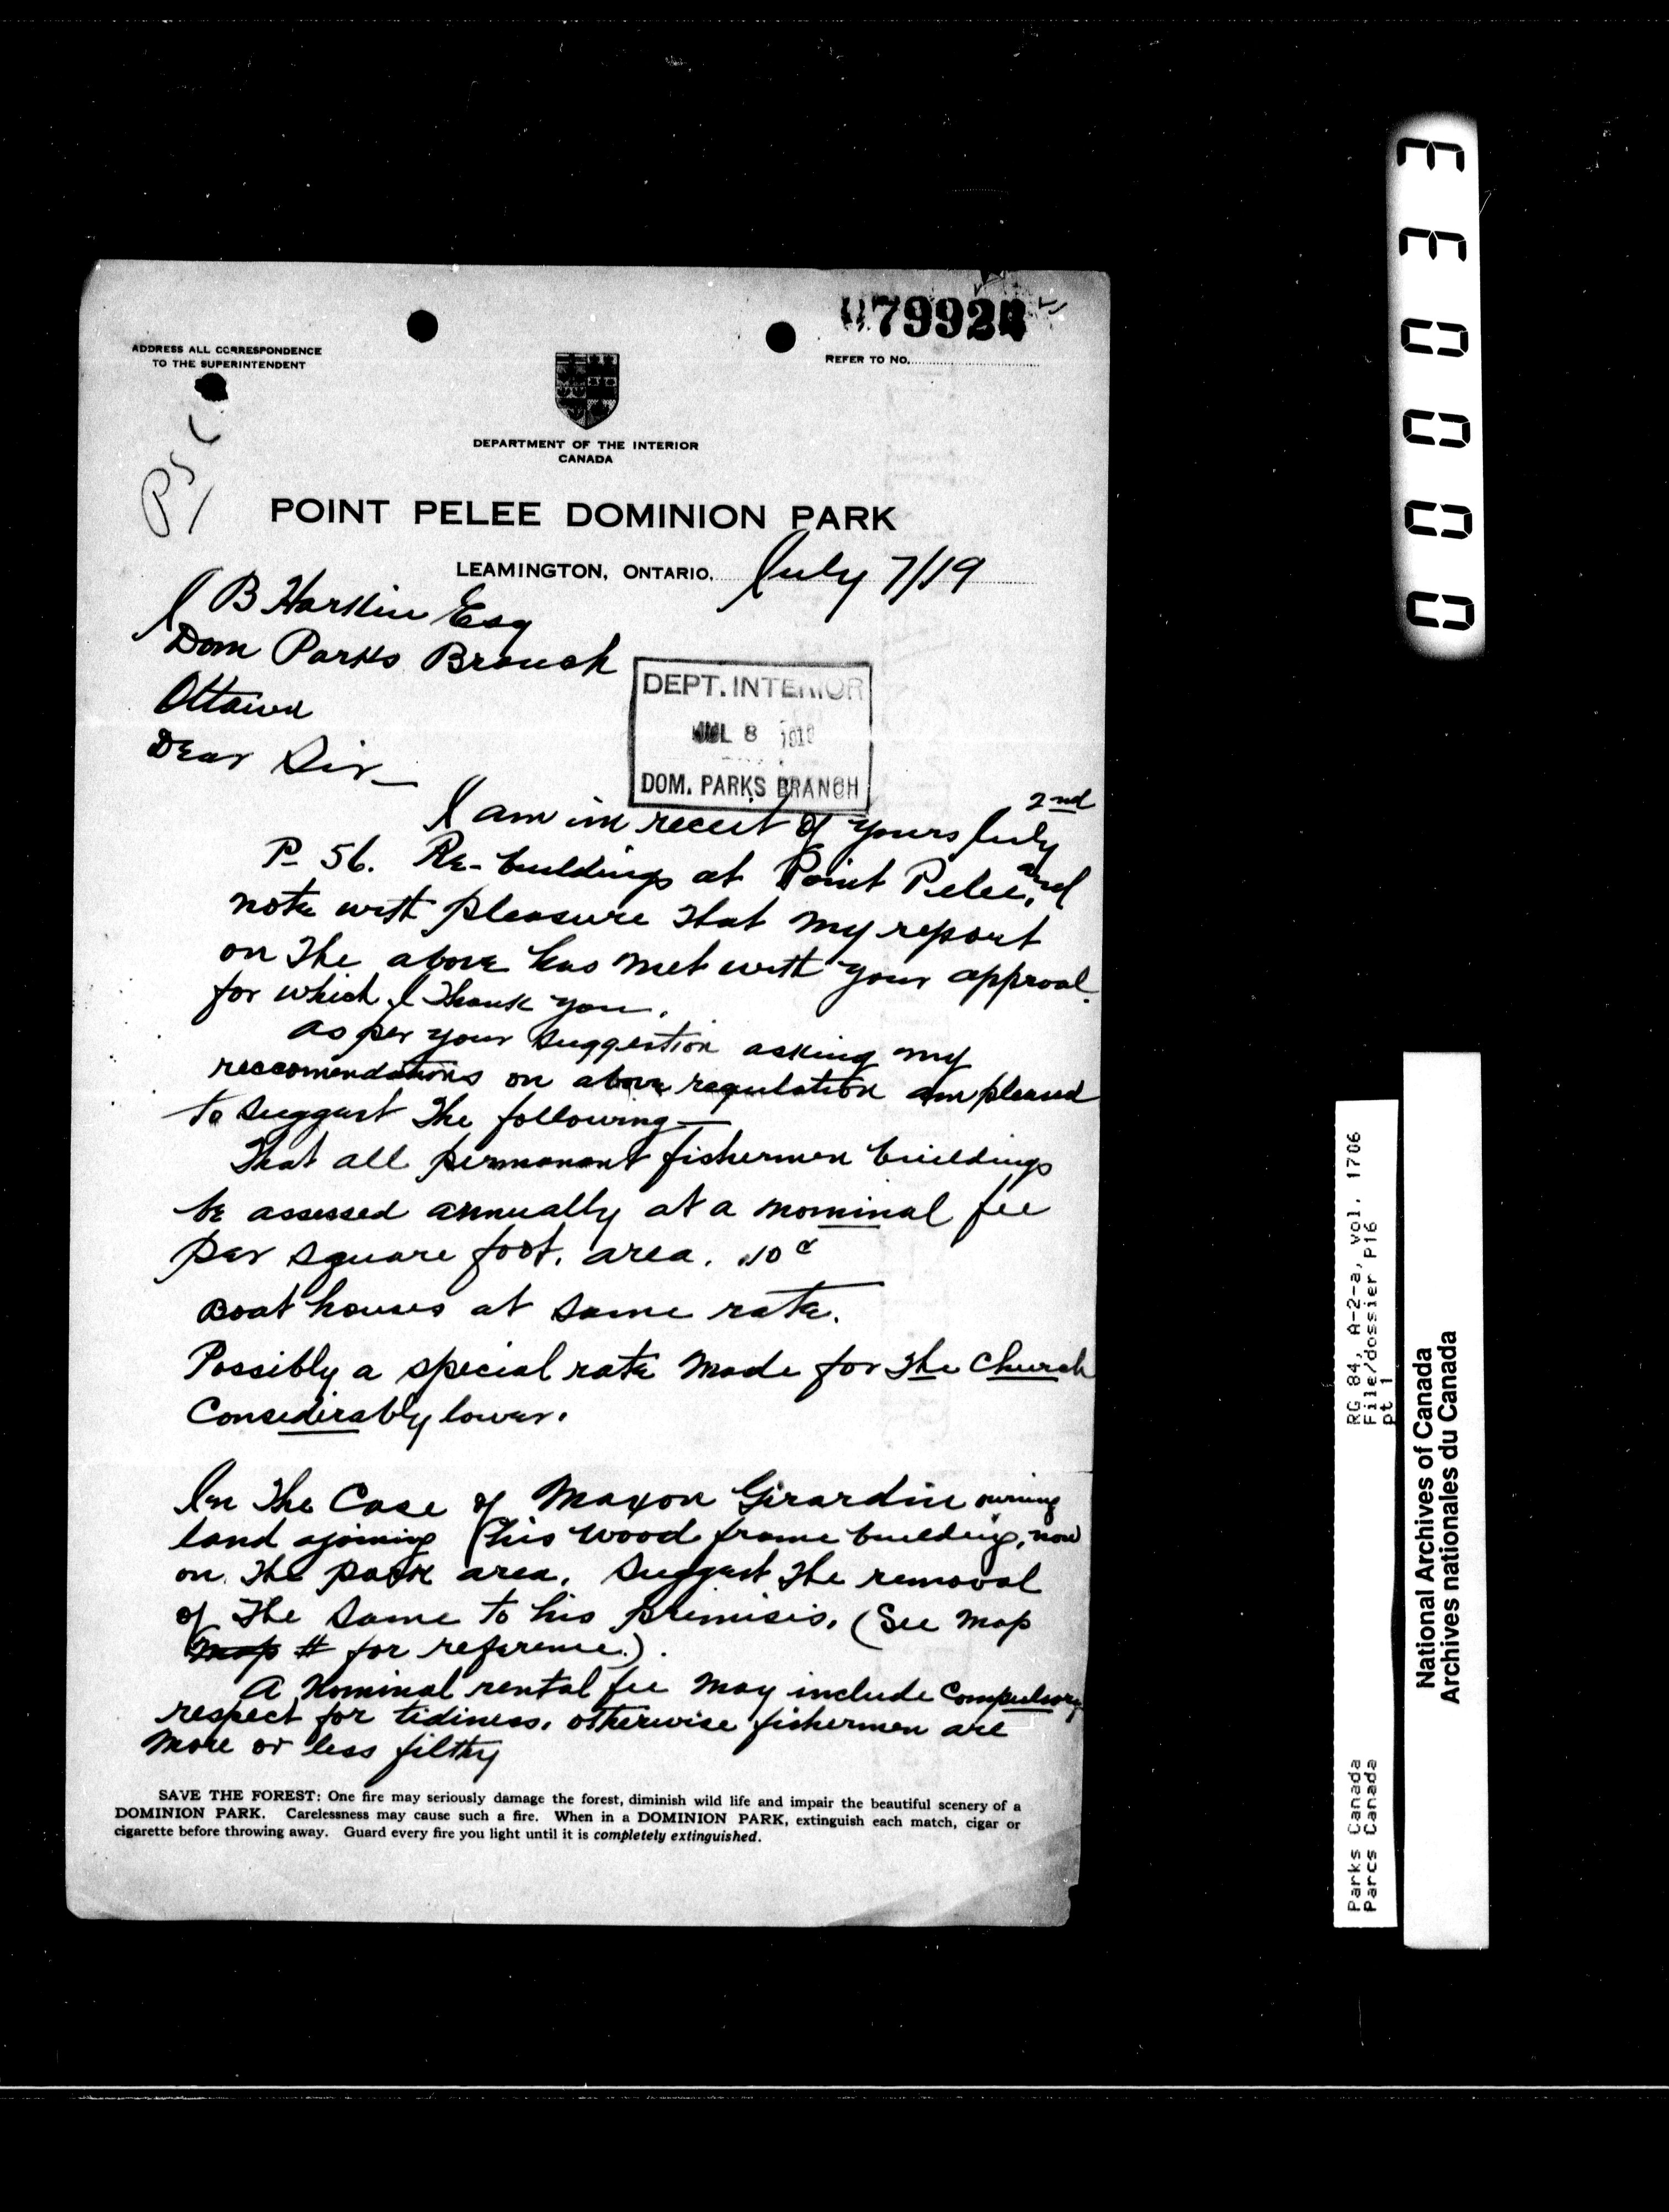 079924
ADDRESS ALL CORRESPONDENCE
TO THE SUPERINTENDENT
REFER TO NO.
DEPARTMENT OF THE INTERIOR
CANADA
POINT PELEE DOMINION PARK
LEAMINGTON, ONTARIO. July 7/19
J B Harkin Esq
Dom Parks Branch
Ottawa
Dear Sir
DEPT. INTERIOR
JUL 8 1919
DOM. PARKS BRANCH
I am in receit of yours July 2nd
P- 56. Re-buildings at Point Pelee, and
note with pleasure that my report
on the above has met with your approval.
for which I thank you.
as per your suggestion asking my
reccomendations on above regulation am pleased
to suggest the following
That all permanant fishermen buildings
be assessed annually at a nominal fee
per square foot. area. .10¢
Boat houses at same rate.
Possibly a special rate made for the Church
Considerably lower.
In the Case of Maxon Girardin owning
land ajoining (his wood frame building, now
on the park area. Suggest the removal
of the same to his premisis. (See map
map # for reference.).
A Nominal rental fee may include Compulsory
respect for tidiness. otherwise fishermen are
more or less filthy
SAVE THE FOREST: One fire may seriously damage the forest, diminish wild life and impair the beautiful scenery of a
DOMINION PARK. Carelessness may cause such a fire. When in a DOMINION PARK, extinguish each match, cigar or
cigarette before throwing away. Guard every fire you light until it is completely extinguished.
000033
Parks Canada RG 84, A-2-a, vol. 1706
Parcs Canada File/dossier P16
pt 1
National Archives of Canada
Archives nationales du Canada